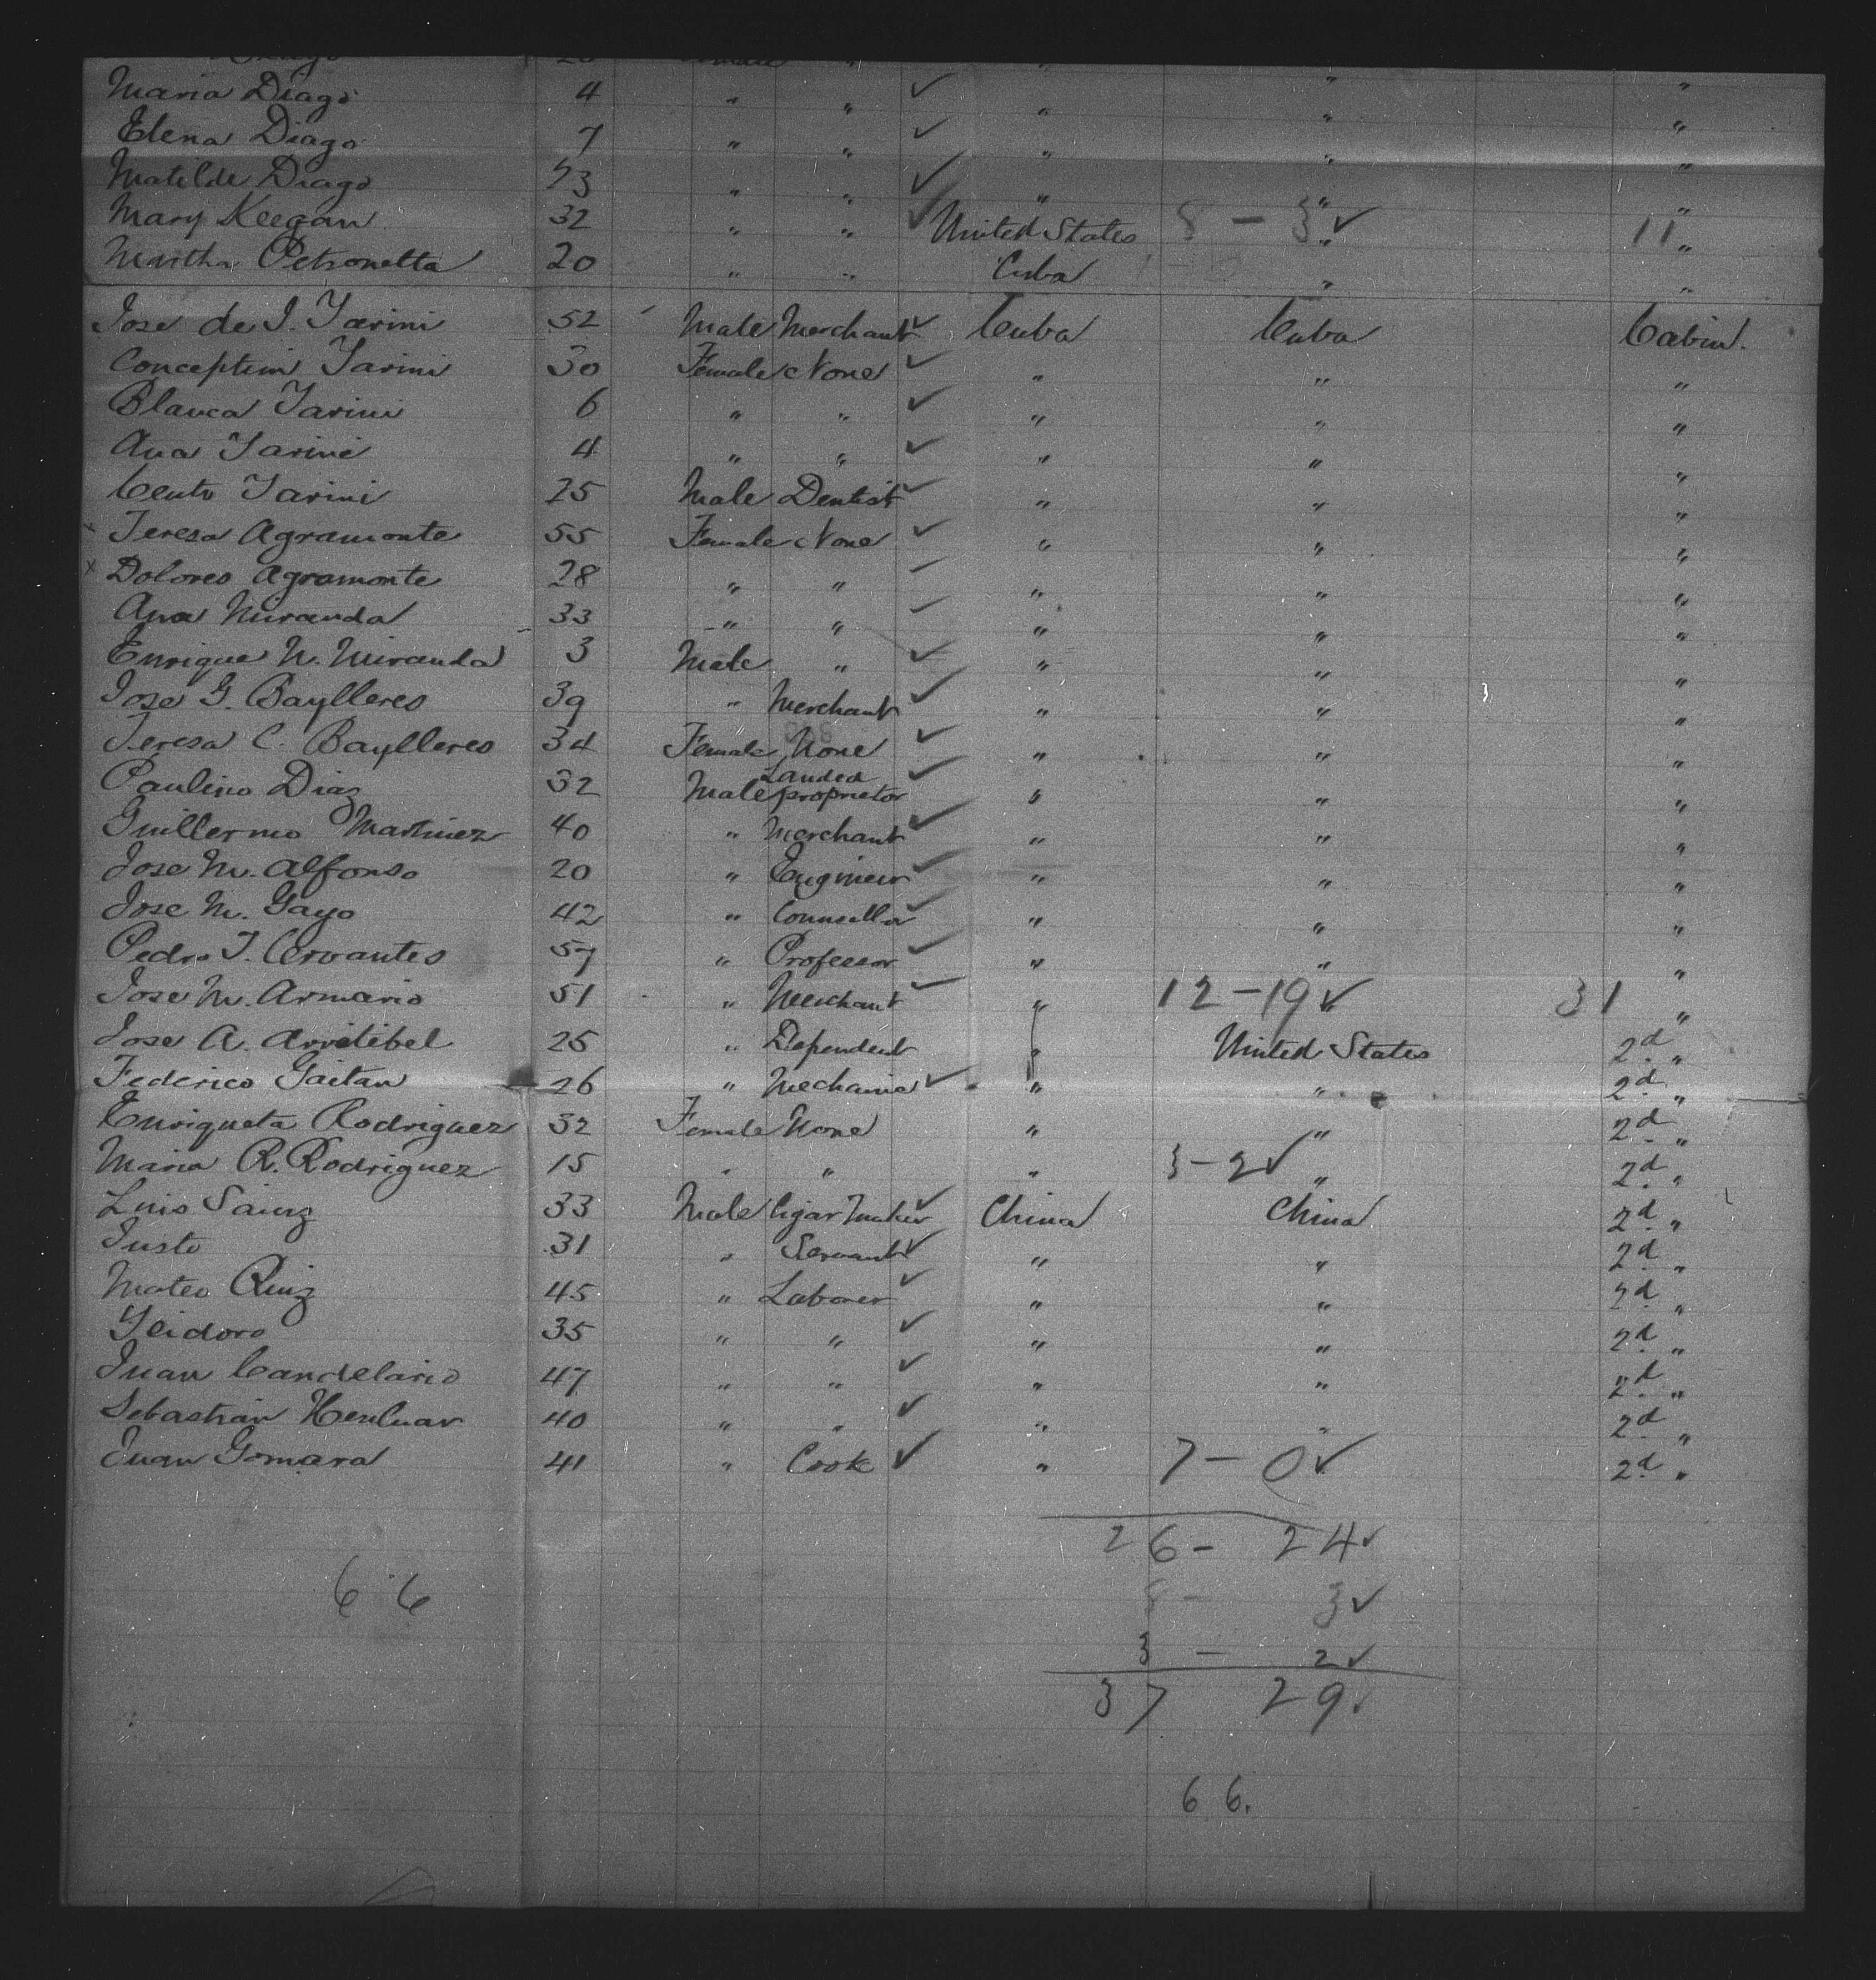 Maria Diago 4 " " ✓ " " "
Elena Diago 7 " " ✓ " " "
Matilde Diago 73 " " ✓ " " "
Mary Keegan 32 " " ✓ United States 8 - 3 ✓ " 11 "
Martha Petronetta 20 " " Cuba " "
Jose de J. Yarini 52 Male Merchant ✓ Cuba Cuba Cabin.
Conception Yarini 30 Female None ✓ " " "
Blanca Yarini 6 " " ✓ " " "
Ana Yarini 4 " " ✓ " " "
Cento Yarini 25 Male Dentist ✓ " " "
x Teresa Agramonte 55 Female None ✓ " " "
x Dolores Agramonte 28 " " ✓ " " "
Ana Miranda 33 " " ✓ " " "
Enrique N. Miranda 3 Male " ✓ " " "
Jose G. Baylleres 39 " Merchant ✓ " " "
Teresa C. Baylleres 34 Female None ✓ " " "
Paulino Diaz 32 Male Landed proprietor ✓ " " "
Guillermo Martinez 40 " Merchant ✓ " " "
Jose M. Alfonso 20 " Engineer ✓ " " "
Jose M. Gayo 42 " Counsellor ✓ " " "
Pedro J. Cervantes 57 " Professor ✓ " " "
Jose M. Armario 51 " Merchant ✓ " 12 - 19 ✓ " 31 "
Jose A. Arritibel 25 " Dependent " United States 2d "
Federico Gaitan 26 " Mechanic ✓ " " 2d "
Enriqueta Rodriguez 32 Female None " " 2d "
Maria R. Rodriguez 15 " " " 3 - 2 ✓ " 2d "
Luis Sainz 33 Male Cigar Maker ✓ China China 2d "
Justo 31 " Servant ✓ " " 2d "
Mateo Ruiz 45 " Laborer ✓ " " 2d "
Ysidoro 35 " " ✓ " " 2d "
Juan Candelario 47 " " ✓ " " 2d "
Sebastian 40 " " ✓ " " 2d "
Juan Gomara 41 " Cook ✓ " 7 - 0 ✓ 2d "
26 - 24 ✓
66 8 - 3 ✓
3 - 2 ✓
37 29 ✓
66.